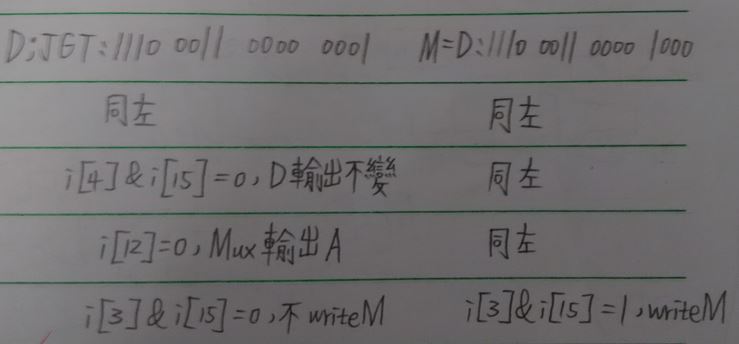 D;JGT:1110 0011 0000 0001 M=D:1110 0011 0000 1000
同左 同左
i[4]&i[15]=0,D輸出不變 同左
i[12]=0,Mux輸出A 同左
i[3]&i[15]=0,不writeM i[3]&i[15]=1,writeM